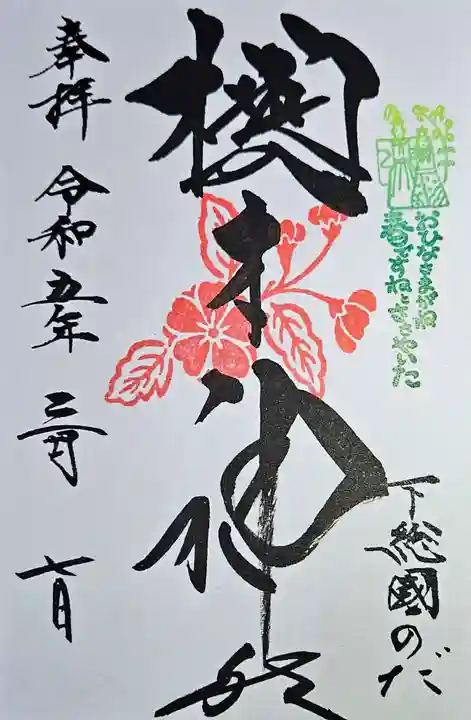 おひなさまがね
春ですねとささやいた
下総國のだ
櫻木神社
奉拝 令和五年 三月 七日